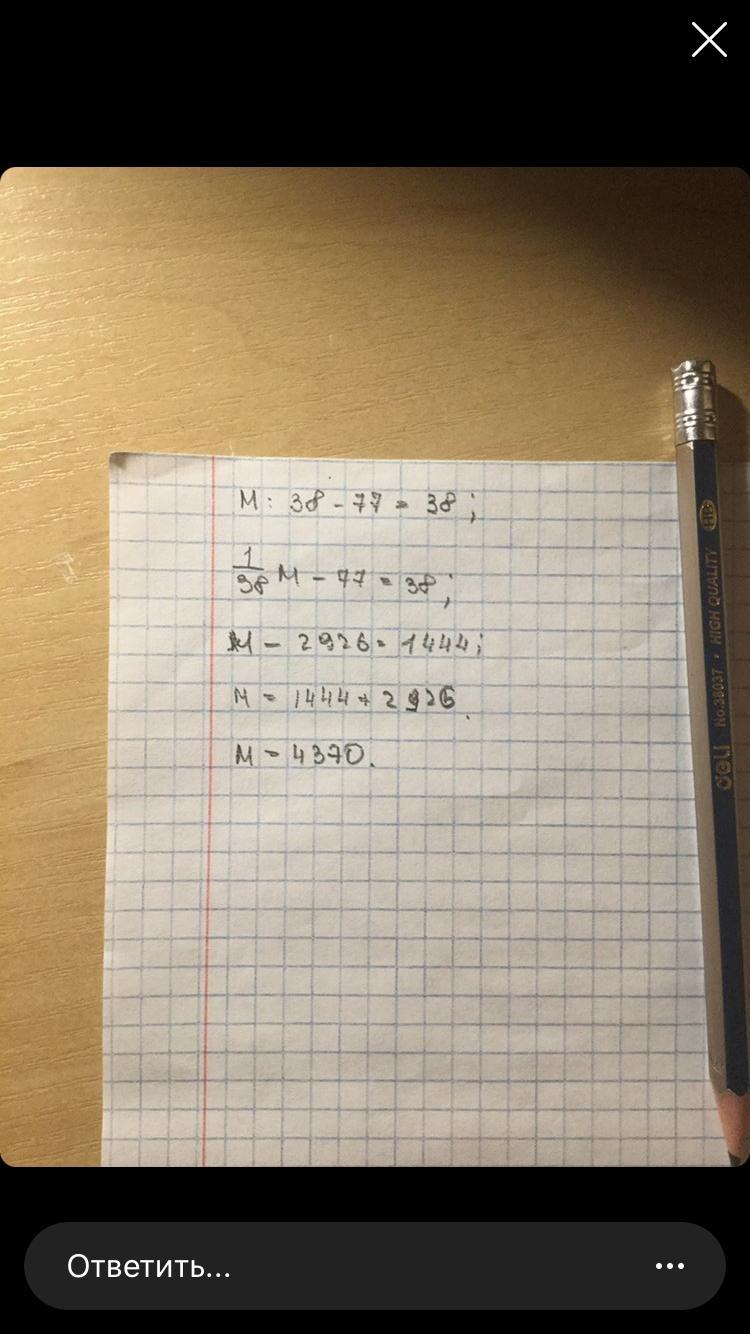 М : 38 - 77 = 38 ;
1/38 М - 77 = 38 ;
М - 2926 = 1444 ;
М = 1444 + 2926.
М = 4370.
deli No.38037 • HIGH QUALITY HB
Ответить...